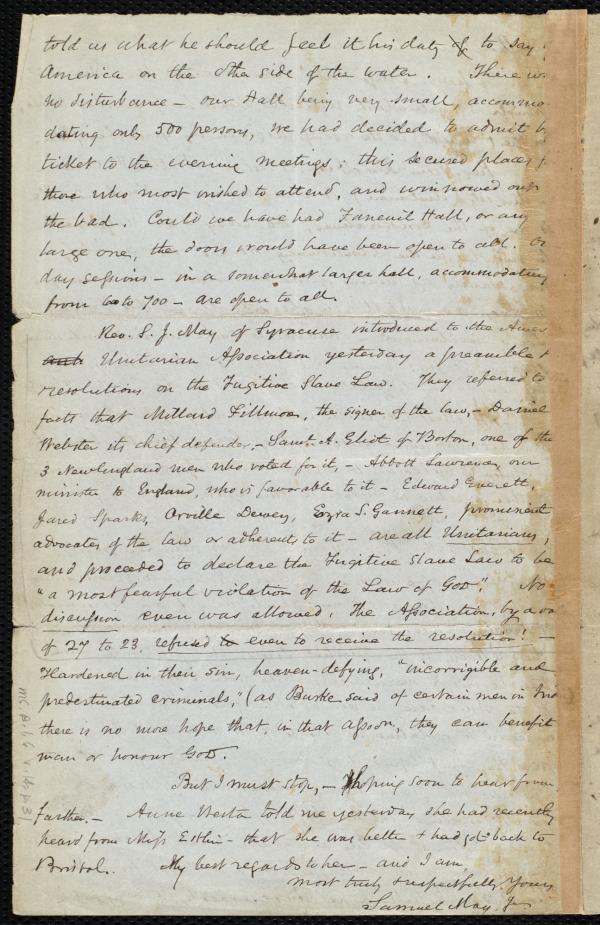 told us what he should feel it his duty of to say
America on the other side of the water. There w
no disturbance – our Hall being very small, accommo
dating only 500 persons, we had decided to admit b
ticket to the evening meetings; this secured places f
those who most wished to attend, and winnowed out
the bad. Could we have had Faneuil Hall, or any
large one, the doors would have been open to all. O
day sessions – in a somewhat larger hall, accommodating
from 6 to 700 – are open to all.
Rev. S. J. May of Syracuse introduced to the Amer
Unitarian Association yesterday a preamble &
resolutions on the Fugitive Slave Law. They referred to
facts that Millard Fillmore, the signer of the law, – Daniel
Webster its chief defender, – Saml. A. Eliot of Boston, one of the
3 New England men who voted for it, – Abbott Lawrence, our
minister to England, who is favorable to it – Edward Everett,
Jared Sparks, Orville Dewey, Ezra S. Gannett, prominent
advocates of the law or adherents to it – are all Unitarians,
and proceeded to declare the Fugitive Slave Law to be
"a most fearful violation of the Law of God". No
discussion even was allowed. The Association, by a vo
of 27 to 23, refused to even to receive the resolution! –
Hardened in their sin, heaven-defying, "incorrigible and
predestinated criminals," (as Burke said of certain men in
there is no more hope that, in that Assocn, they can benefit
man or honour God.
But I must stop, – hoping soon to hear from
farther. – Anne Weston told me yesterday she had recently
heard from Miss Estlin – that she was better & had got back to
Bristol. My best regards to her – and I am
most truly & respectfully Yours
Samuel May, Jr.